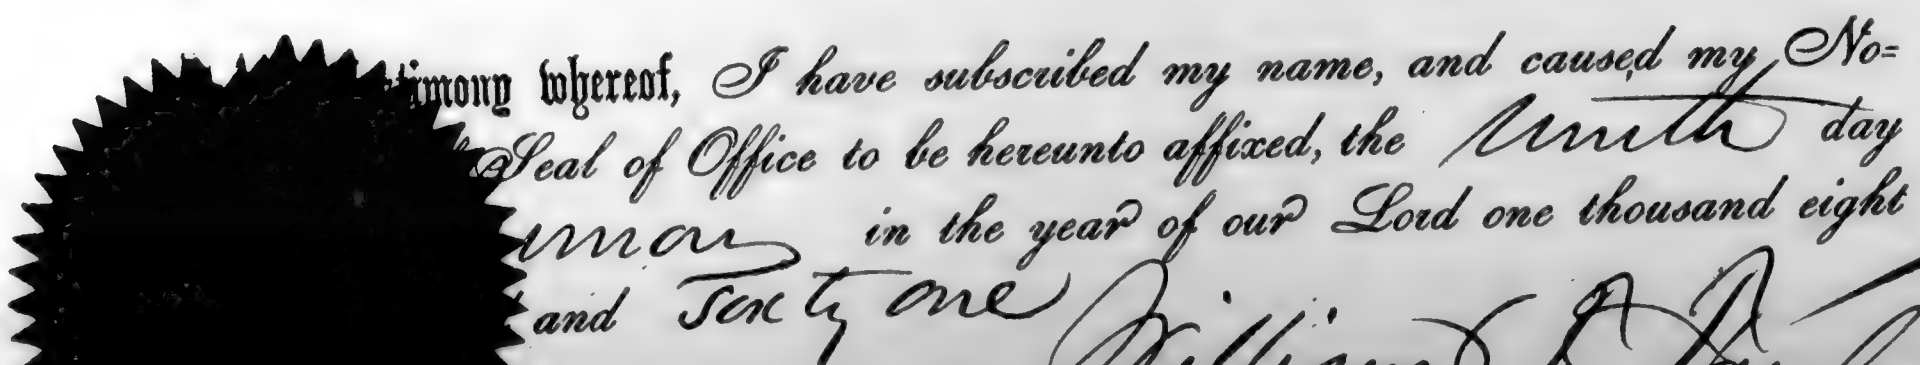 timony whereof, I have subscribed my name, and caused my No=
Seal of Office to be hereunto affixed, the ninth day
in the year of our Lord one thousand eight
and Sixty one
William